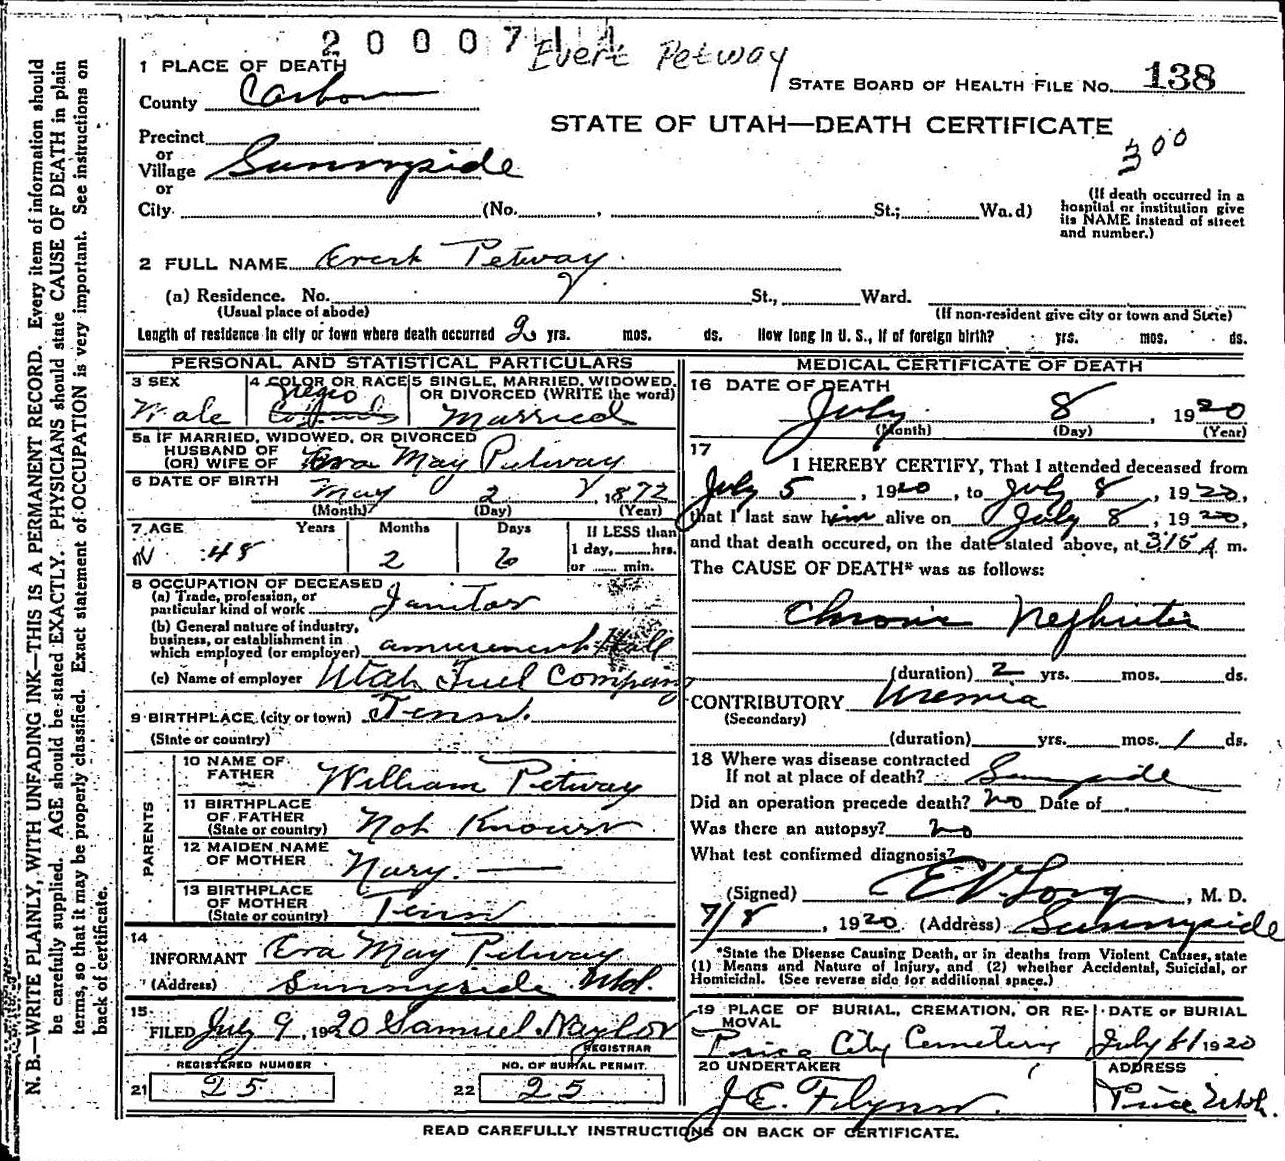 2000711
Evert Petway
1 PLACE OF DEATH
STATE BOARD OF HEALTH FILE No. 138
County Carbon
STATE OF UTAH—DEATH CERTIFICATE
300
Precinct
or
Village Sunnyside
or
City (No. , St.; Wa.d)
(If death occurred in a hospital or institution give its NAME instead of street and number.)
2 FULL NAME Evert Petway
(a) Residence. No. St., Ward.
(Usual place of abode) (If non-resident give city or town and State)
Length of residence in city or town where death occurred 2 yrs. mos. ds. How long in U. S., if of foreign birth? yrs. mos. ds.
PERSONAL AND STATISTICAL PARTICULARS
3 SEX Male
4 COLOR OR RACE Negro
5 SINGLE, MARRIED, WIDOWED, OR DIVORCED (WRITE the word) Married
5a IF MARRIED, WIDOWED, OR DIVORCED
HUSBAND OF
(OR) WIFE OF Eva May Petway
6 DATE OF BIRTH May 2, 1872
(Month) (Day) (Year)
7 AGE Years Months Days If LESS than
48 2 6 1 day, hrs.
or min.
8 OCCUPATION OF DECEASED
(a) Trade, profession, or
particular kind of work Janitor
(b) General nature of industry,
business, or establishment in
which employed (or employer) amusement Hall
(c) Name of employer Utah Fuel Company
9 BIRTHPLACE (city or town) Tenn.
(State or country)
PARENTS
10 NAME OF
FATHER William Petway
11 BIRTHPLACE
OF FATHER
(State or country) Not Known
12 MAIDEN NAME
OF MOTHER Mary. —
13 BIRTHPLACE
OF MOTHER
(State or country) Tenn
14
INFORMANT Eva May Petway
(Address) Sunnyside Utah.
15
FILED July 9, 1920 Samuel Naylor
REGISTRAR
REGISTERED NUMBER NO. OF BURIAL PERMIT.
21 25 22 25
MEDICAL CERTIFICATE OF DEATH
16 DATE OF DEATH
July 8, 1920
(Month) (Day) (Year)
17
I HEREBY CERTIFY, That I attended deceased from
July 5, 1920, to July 8, 1920,
that I last saw him alive on July 8, 1920,
and that death occured, on the date stated above, at 315 A m.
The CAUSE OF DEATH* was as follows:
Chronic Nephritis
(duration) 2 yrs. mos. ds.
CONTRIBUTORY Uremia
(Secondary)
(duration) yrs. mos. 1 ds.
18 Where was disease contracted
If not at place of death? Sunnyside
Did an operation precede death? no Date of
Was there an autopsy? no
What test confirmed diagnosis?
(Signed) E V. Long, M. D.
7/8, 1920 (Address) Sunnyside
*State the Disease Causing Death, or in deaths from Violent Causes, state
(1) Means and Nature of Injury, and (2) whether Accidental, Suicidal, or
Homicidal. (See reverse side for additional space.)
19 PLACE OF BURIAL, CREMATION, OR RE-
MOVAL
Price City Cemetery
DATE OF BURIAL
July 1920
20 UNDERTAKER
J. E. Flynn.
ADDRESS
Price Utah.
READ CAREFULLY INSTRUCTIONS ON BACK OF CERTIFICATE.
N. B.—WRITE PLAINLY, WITH UNFADING INK—THIS IS A PERMANENT RECORD. Every item of information should
be carefully supplied. AGE should be stated EXACTLY. PHYSICIANS should state CAUSE OF DEATH in plain
terms, so that it may be properly classified. Exact statement of OCCUPATION is very important. See instructions on
back of certificate.